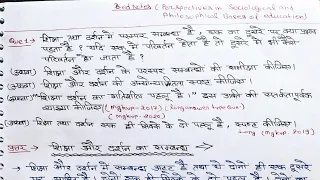 Bed notes (Perspectives in Sociological and
Philosophical Bases of education)
Que 1→ शिक्षा तथा दर्शन में परस्पर सम्बन्ध है। एक का दूसरे पर क्या प्रभाव
पड़ता है? यदि एक में परिवर्तन होता है तो दूसरे में भी कैसे
परिवर्तन हो जाता है?
(अथवा) शिक्षा और दर्शन के परस्पर सम्बन्धों की समीक्षा कीजिये।
(अथवा) शिक्षा और दर्शन की अन्योन्याश्रितता स्पष्ट कीजिए।
(अथवा) "शिक्षा दर्शन का गतिशील पहलू है।" इस उक्ति की
व्याख्या कीजिए। (Mgkvp-2017)
(Mgkvp-2020)
(अथवा) शिक्षा तथा दर्शन एक ही सिक्के के दो पहलू हैं, स्पष्ट कीजिए।
(Mgkvp-2019)
उत्तर→ शिक्षा और दर्शन का सम्बन्ध
शिक्षा और दर्शन में सम्बन्ध अटूट है, तथा ये दोनों ही एक दूसरे